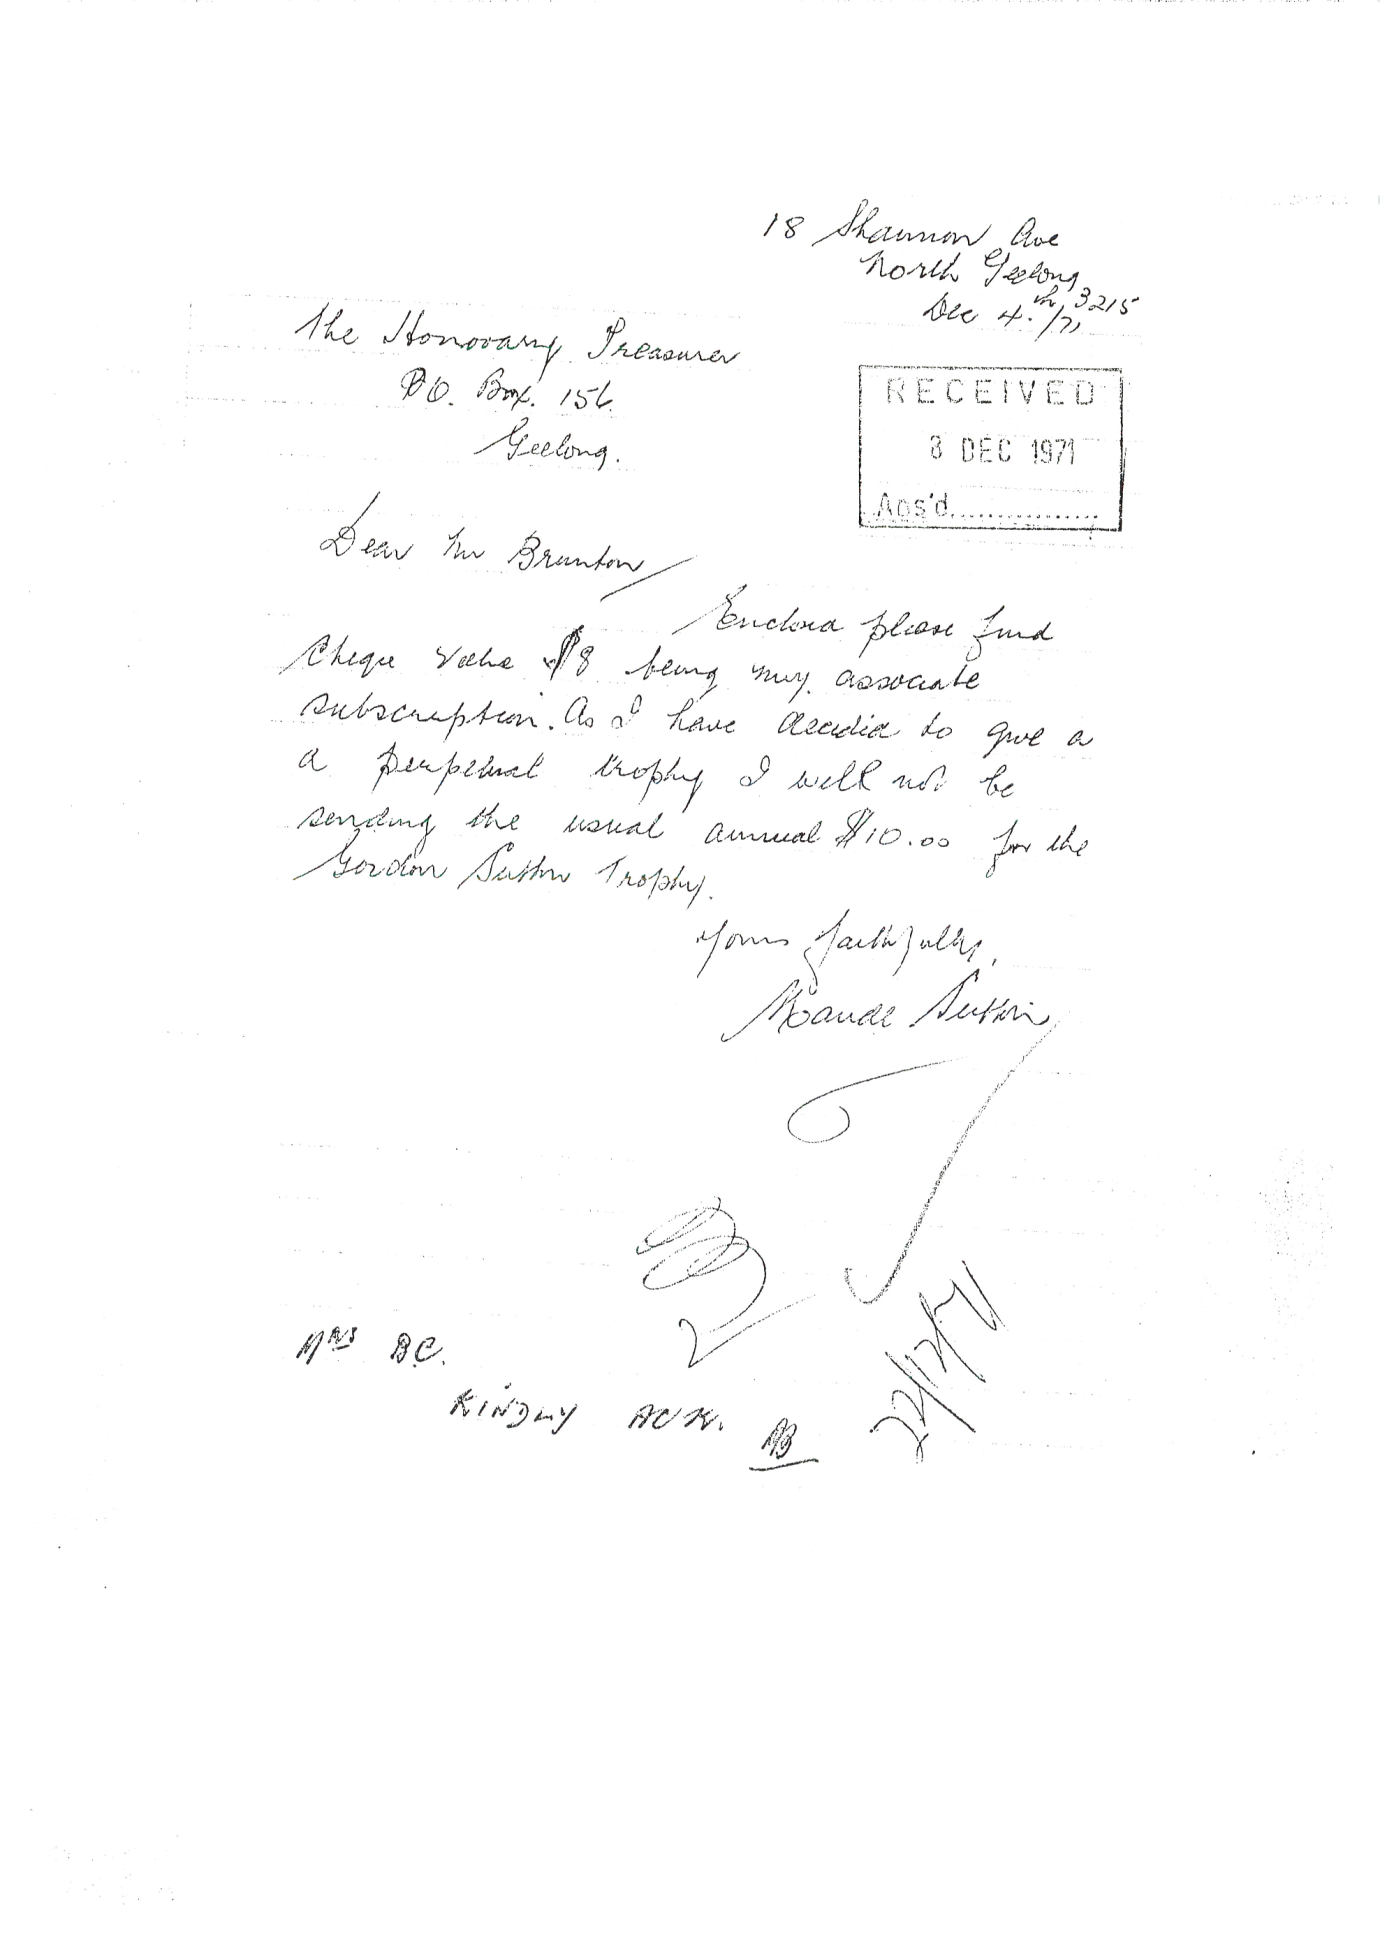 18 Shannon Ave
North Geelong
3215
Dec 4.th /71
The Honorary Treasurer
P.O. Box. 156.
Geelong.
RECEIVED
8 DEC 1971
Ans'd..................
Dear Mr Brunton
Enclosed please find
cheque value $8 being my associate
subscription. As I have decided to give a
a perpetual trophy I will not be
sending the usual annual $10.00 for the
Gordon Sutton Trophy.
Yours faithfully,
Maude Sutton
MRS BC.
KINDLY ACK. AB
22/12/71